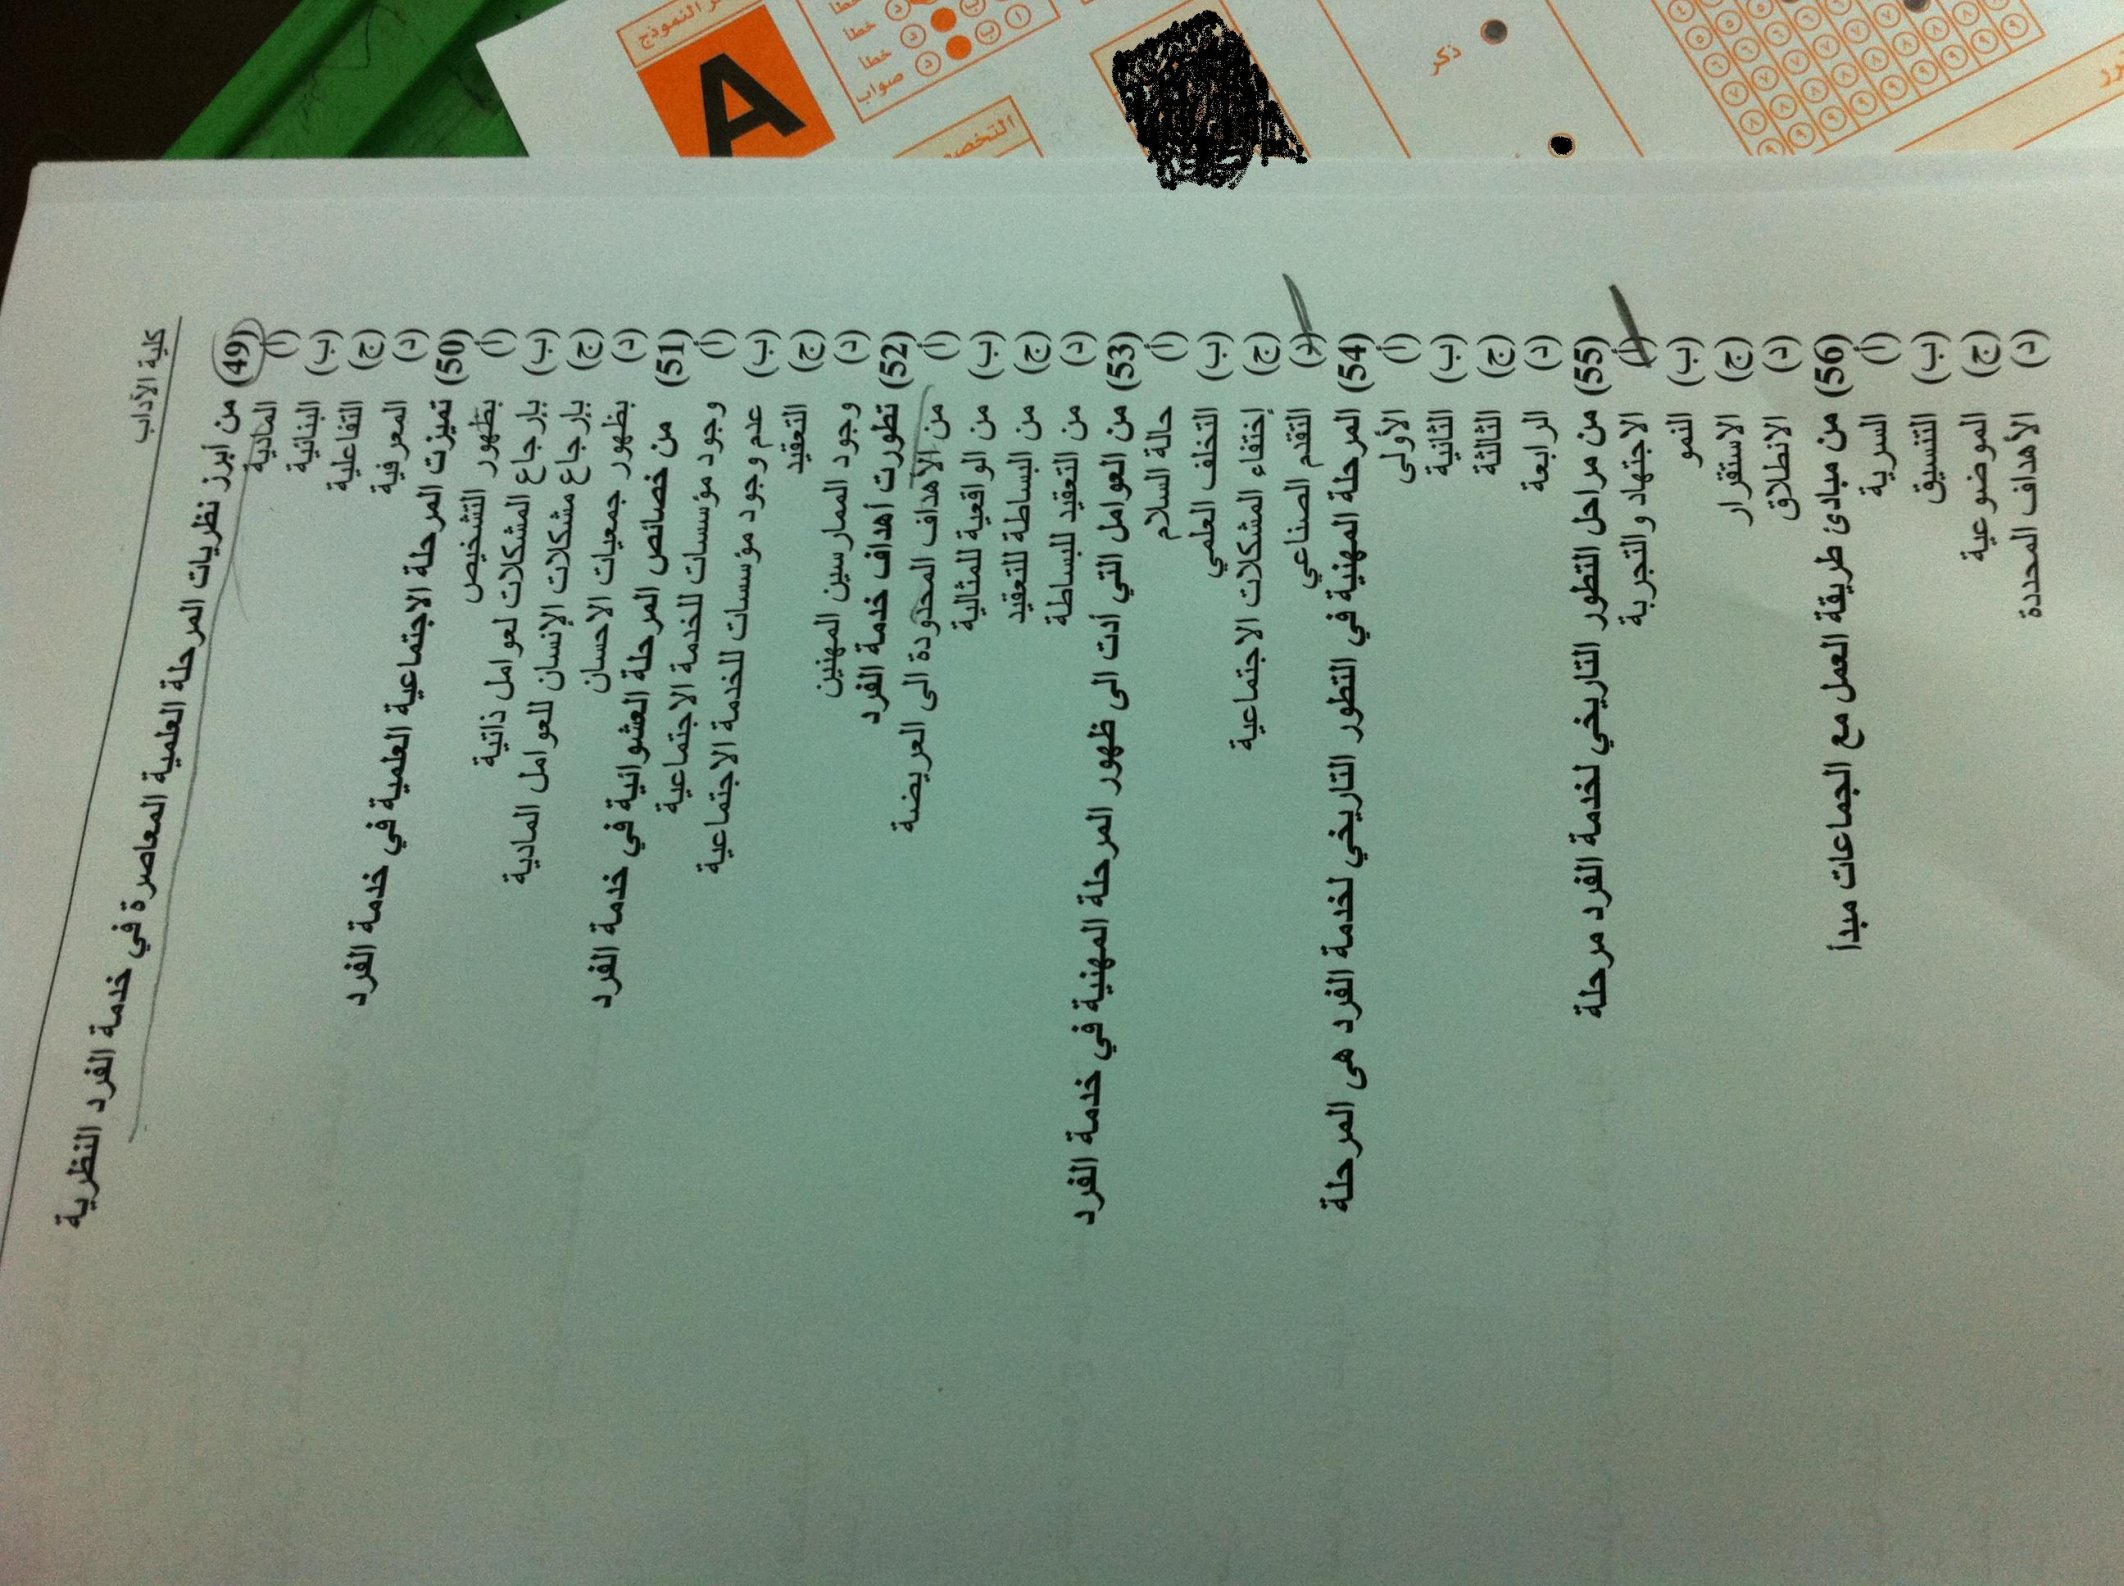 كلية الآداب
(49) من أبرز نظريات المرحلة العلمية المعاصرة في خدمة الفرد النظرية
(أ) المادية
(ب) البنائية
(ج) التفاعلية
(د) المعرفية
(50) تميزت المرحلة الاجتماعية العلمية في خدمة الفرد
(أ) بظهور التشخيص
(ب) بإرجاع المشكلات لعوامل ذاتية
(ج) بإرجاع مشكلات الإنسان للعوامل المادية
(د) بظهور جمعيات الاحسان
(51) من خصائص المرحلة العشوائية في خدمة الفرد
(أ) وجود مؤسسات للخدمة الاجتماعية
(ب) عدم وجود مؤسسات للخدمة الاجتماعية
(ج) التعقيد
(د) وجود الممارسين المهنيين
(52) تطورت أهداف خدمة الفرد
(أ) من الأهداف المحدودة الى العريضة
(ب) من الواقعية للمثالية
(ج) من البساطة للتعقيد
(د) من التعقيد للبساطة
(53) من العوامل التي أدت الى ظهور المرحلة المهنية في خدمة الفرد
(أ) حالة السلام
(ب) التخلف العلمي
(ج) إختفاء المشكلات الاجتماعية
(د) التقدم الصناعي
(54) المرحلة المهنية في التطور التاريخي لخدمة الفرد هى المرحلة
(أ) الأولى
(ب) الثانية
(ج) الثالثة
(د) الرابعة
(55) من مراحل التطور التاريخي لخدمة الفرد مرحلة
(أ) الاجتهاد والتجربة
(ب) النمو
(ج) الاستقرار
(د) الانطلاق
(56) من مبادئ طريقة العمل مع الجماعات مبدأ
(أ) السرية
(ب) التنسيق
(ج) الموضوعية
(د) الأهداف المحددة
النموذج
A
خطأ
خطأ
صواب
ذكر